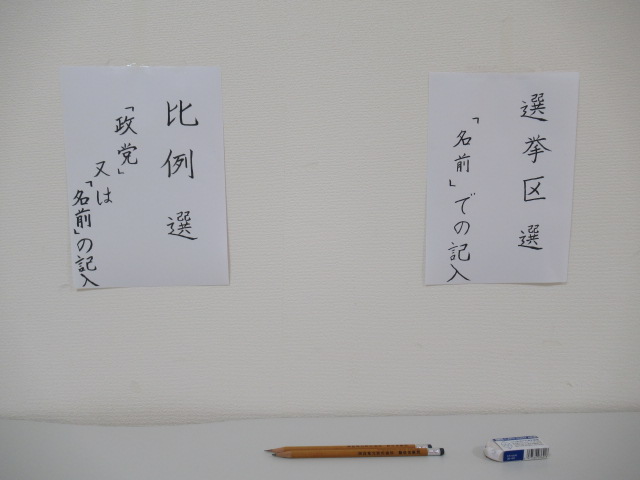 選挙区選
「名前」での記入
比例選
「政党」
又は
「名前」の記入